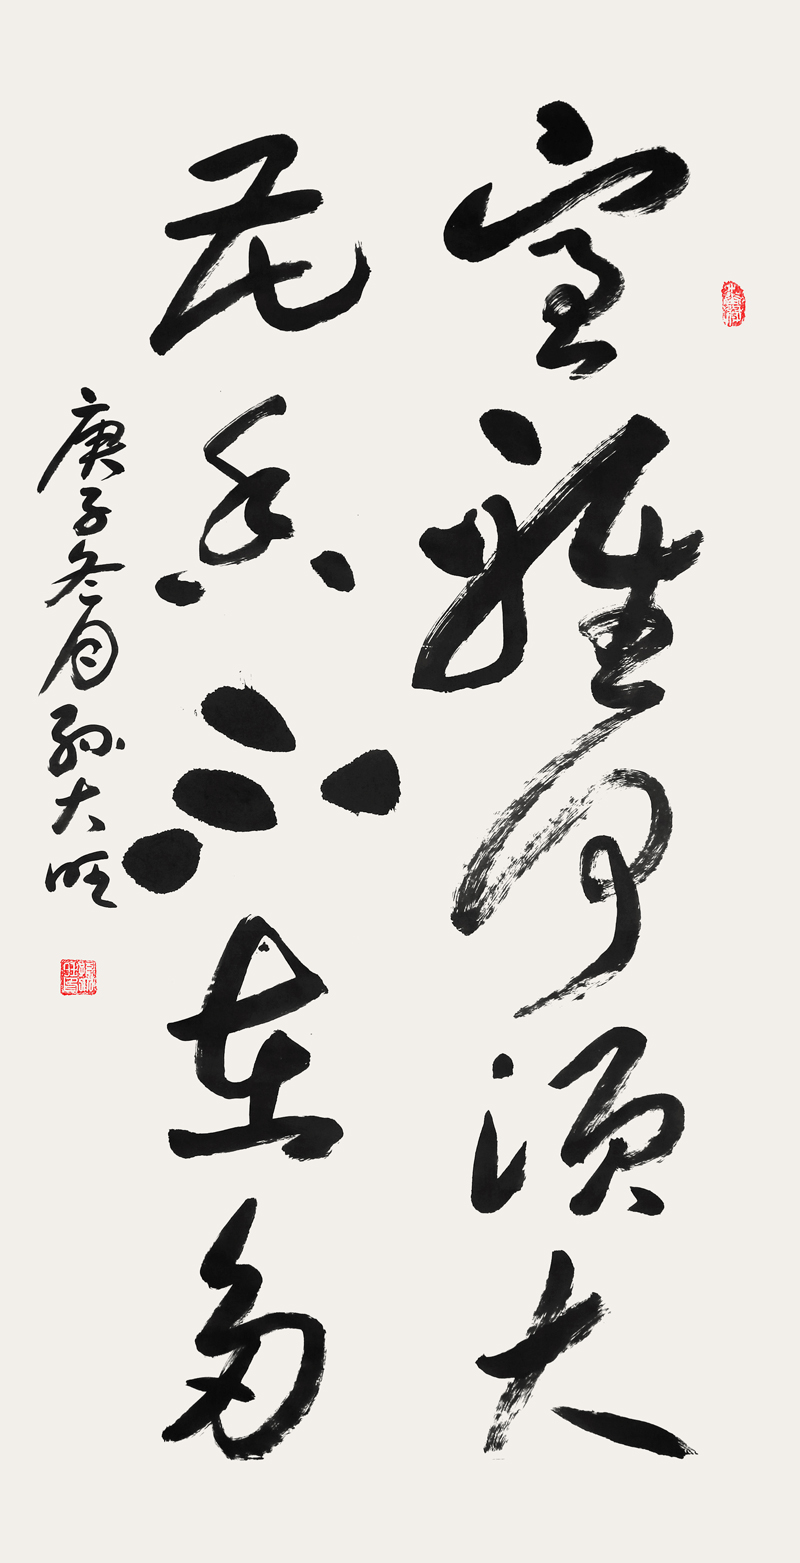 室雅何须大
花香不在多
庚子冬月孙大旺